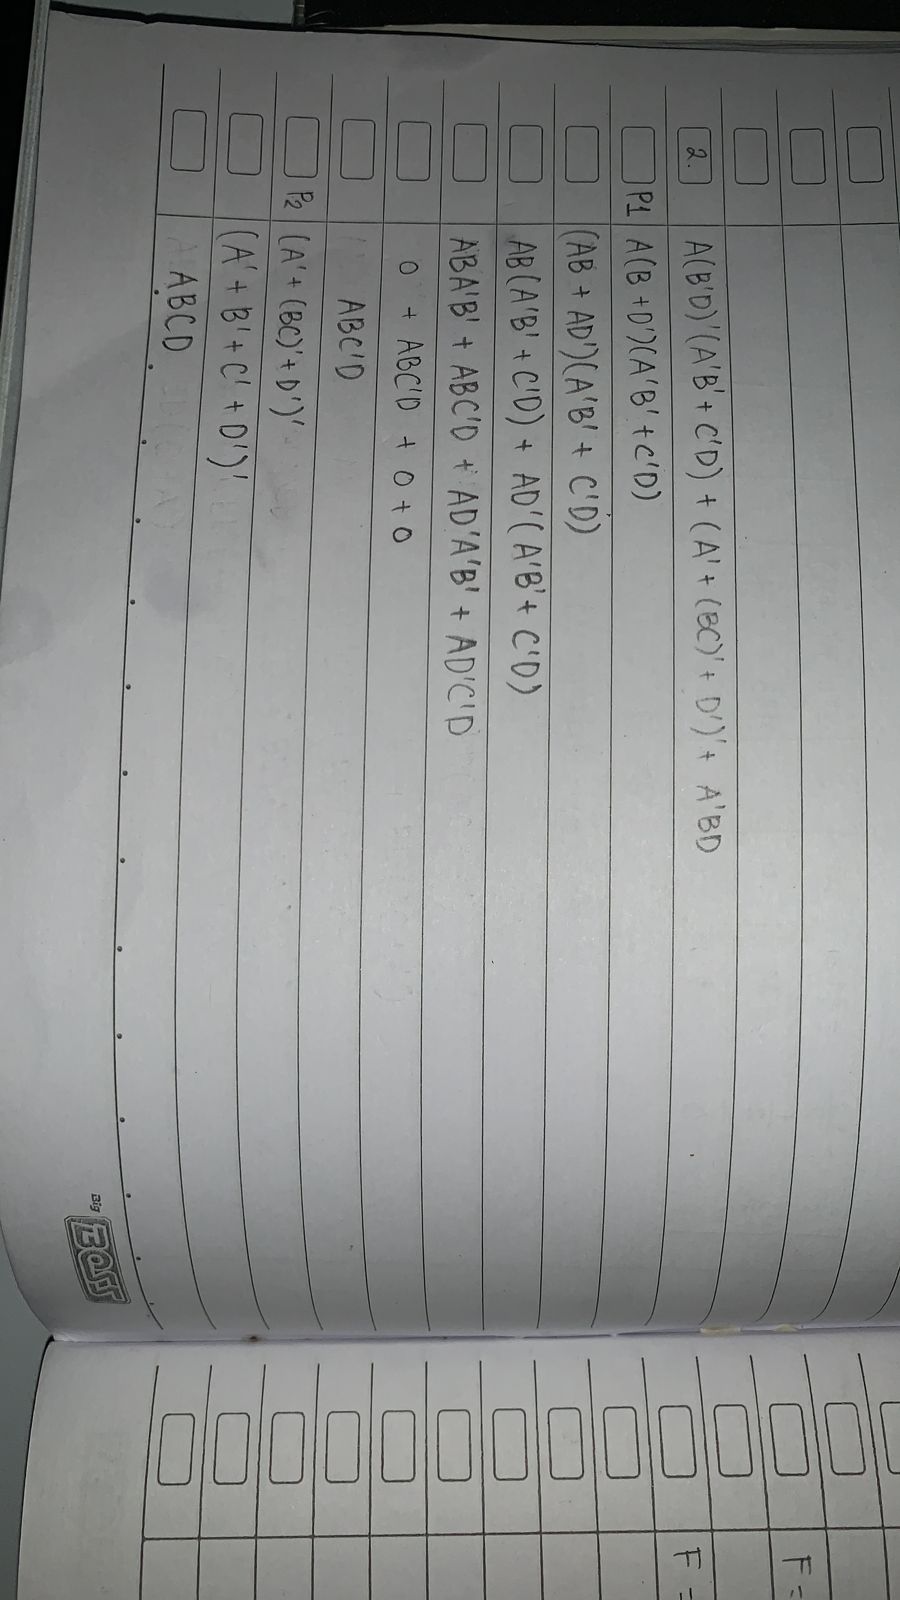 2. A(B'D)'(A'B' + C'D) + (A' + (BC)' + D')' + A'BD
P1 A(B + D')(A'B' + C'D)
(AB + AD')(A'B' + C'D)
AB(A'B' + C'D) + AD'(A'B' + C'D)
ABA'B' + ABC'D + AD'A'B' + AD'C'D
0 + ABC'D + 0 + 0
ABC'D
P2 (A' + (BC)' + D')'
(A' + B' + C' + D')'
ABCD
Big BOSS
F =
F =